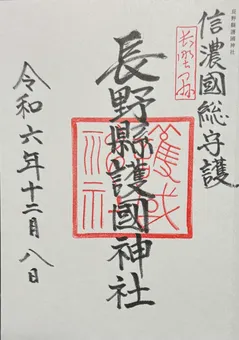 長野縣護國神社
信濃國総守護
長野縣護國神社
令和六年十二月八日